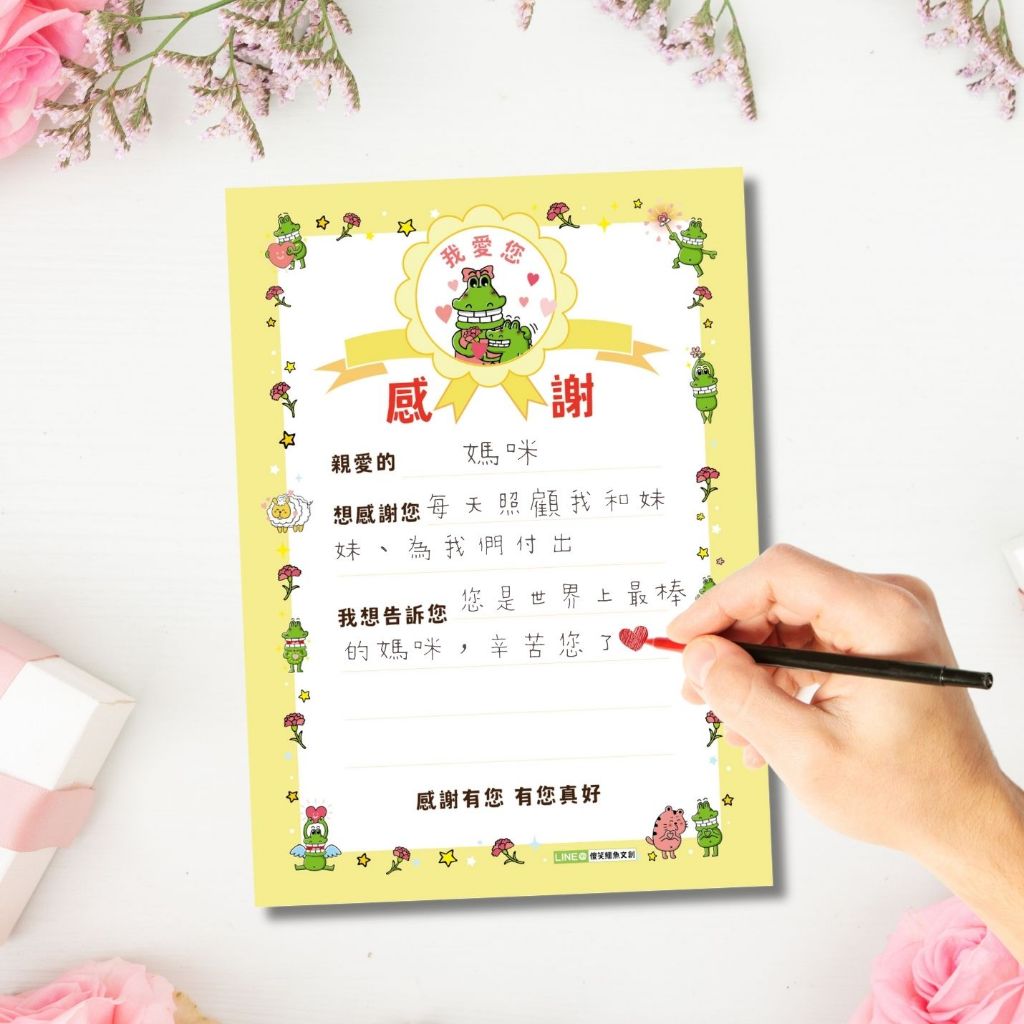 我愛您
感謝
親愛的 媽咪
想感謝您 每天照顧我和妹
妹、為我們付出
我想告訴您 您是世界上最棒
的媽咪，辛苦您了
感謝有您 有您真好
LINE@ 傻笑鱷魚文創